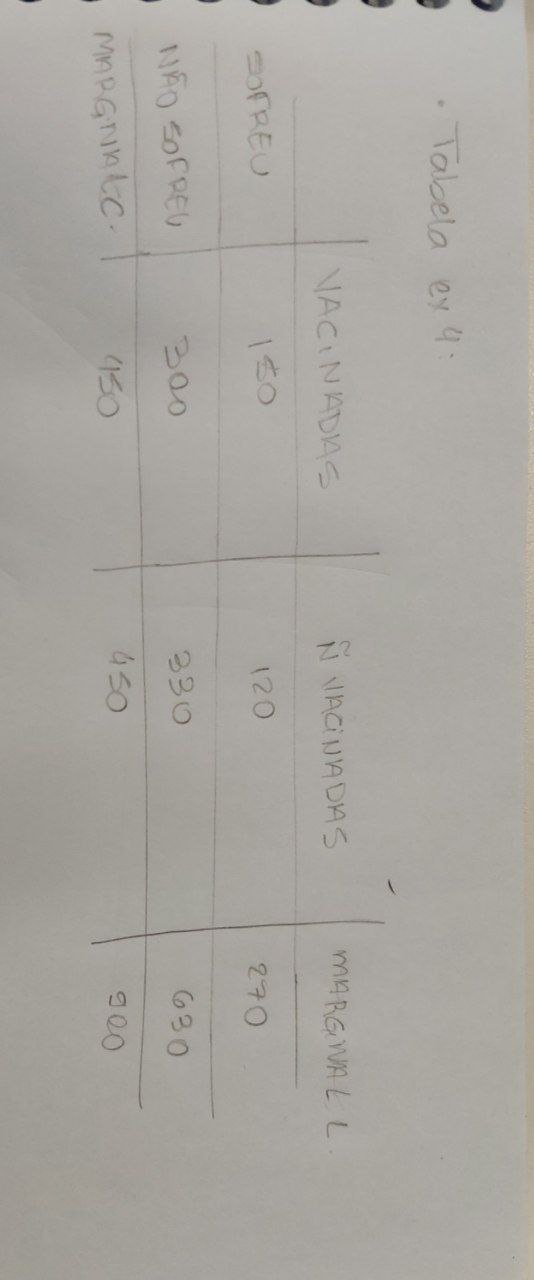 · Tabela ex 4:
VACINADAS Ñ VACINADAS MARGINAL L.
SOFREU 150 120 270
NÃO SOFREU 300 330 630
MARGINAL C. 450 450 900